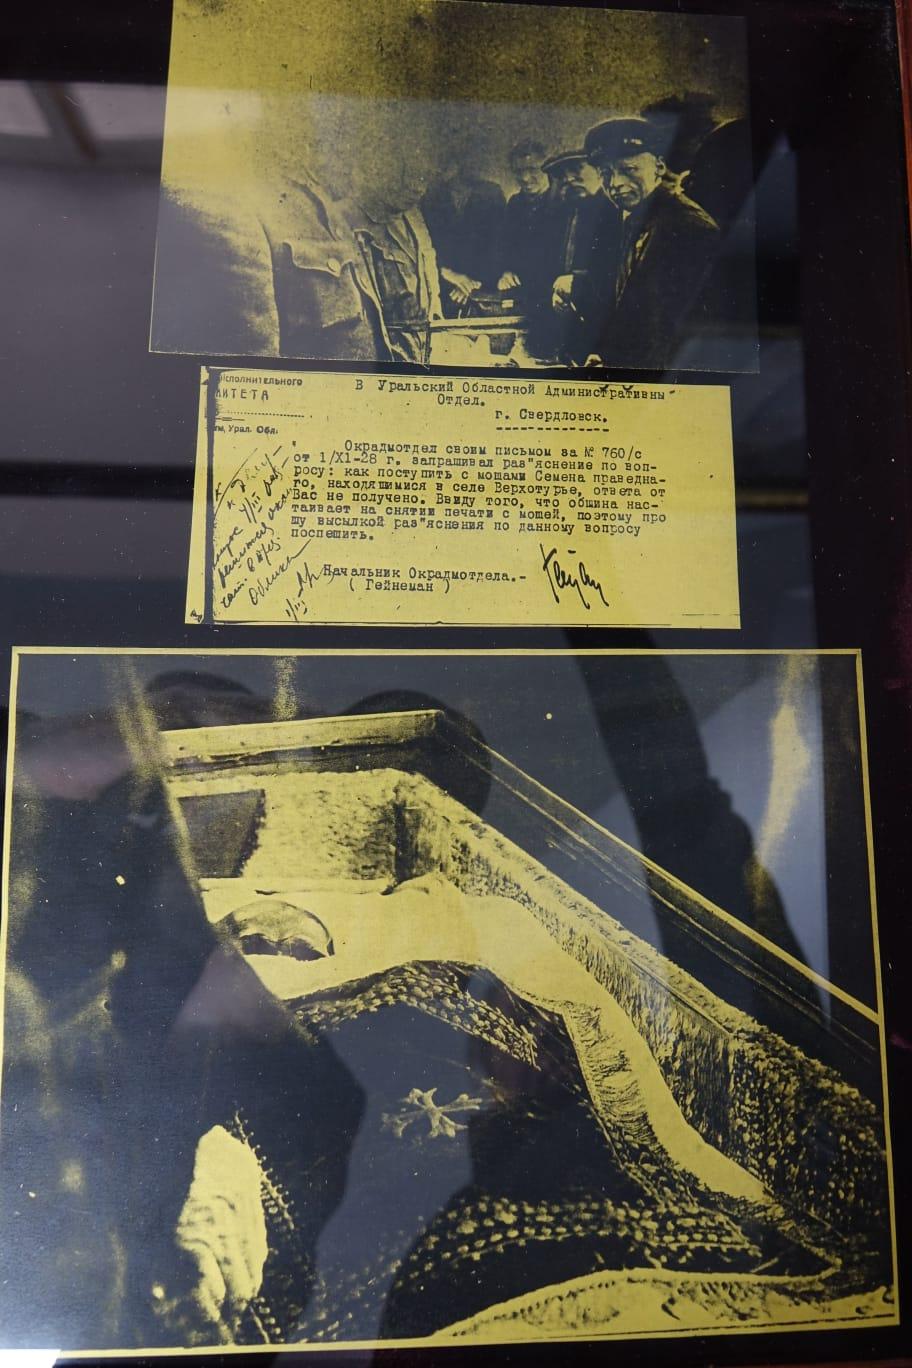 исполнительного
ИТЕТА
Урал. Обл.
В Уральский Областной Административны
Отдел.
г. Свердловск.
Окрадмотдел своим письмом за № 760/с
от 1/XI-28 г. запрашивал раз"яснение по воп-
росу: как поступить с мощами Семена праведна-
го, находящимися в селе Верхотурье, ответа от
Вас не получено. Ввиду того, что община нас-
таивает на снятии печати с мощей, поэтому про
шу высылкой раз"яснения по данному вопросу
поспешить.
Начальник Окрадмотдела.-
( Гейнеман )